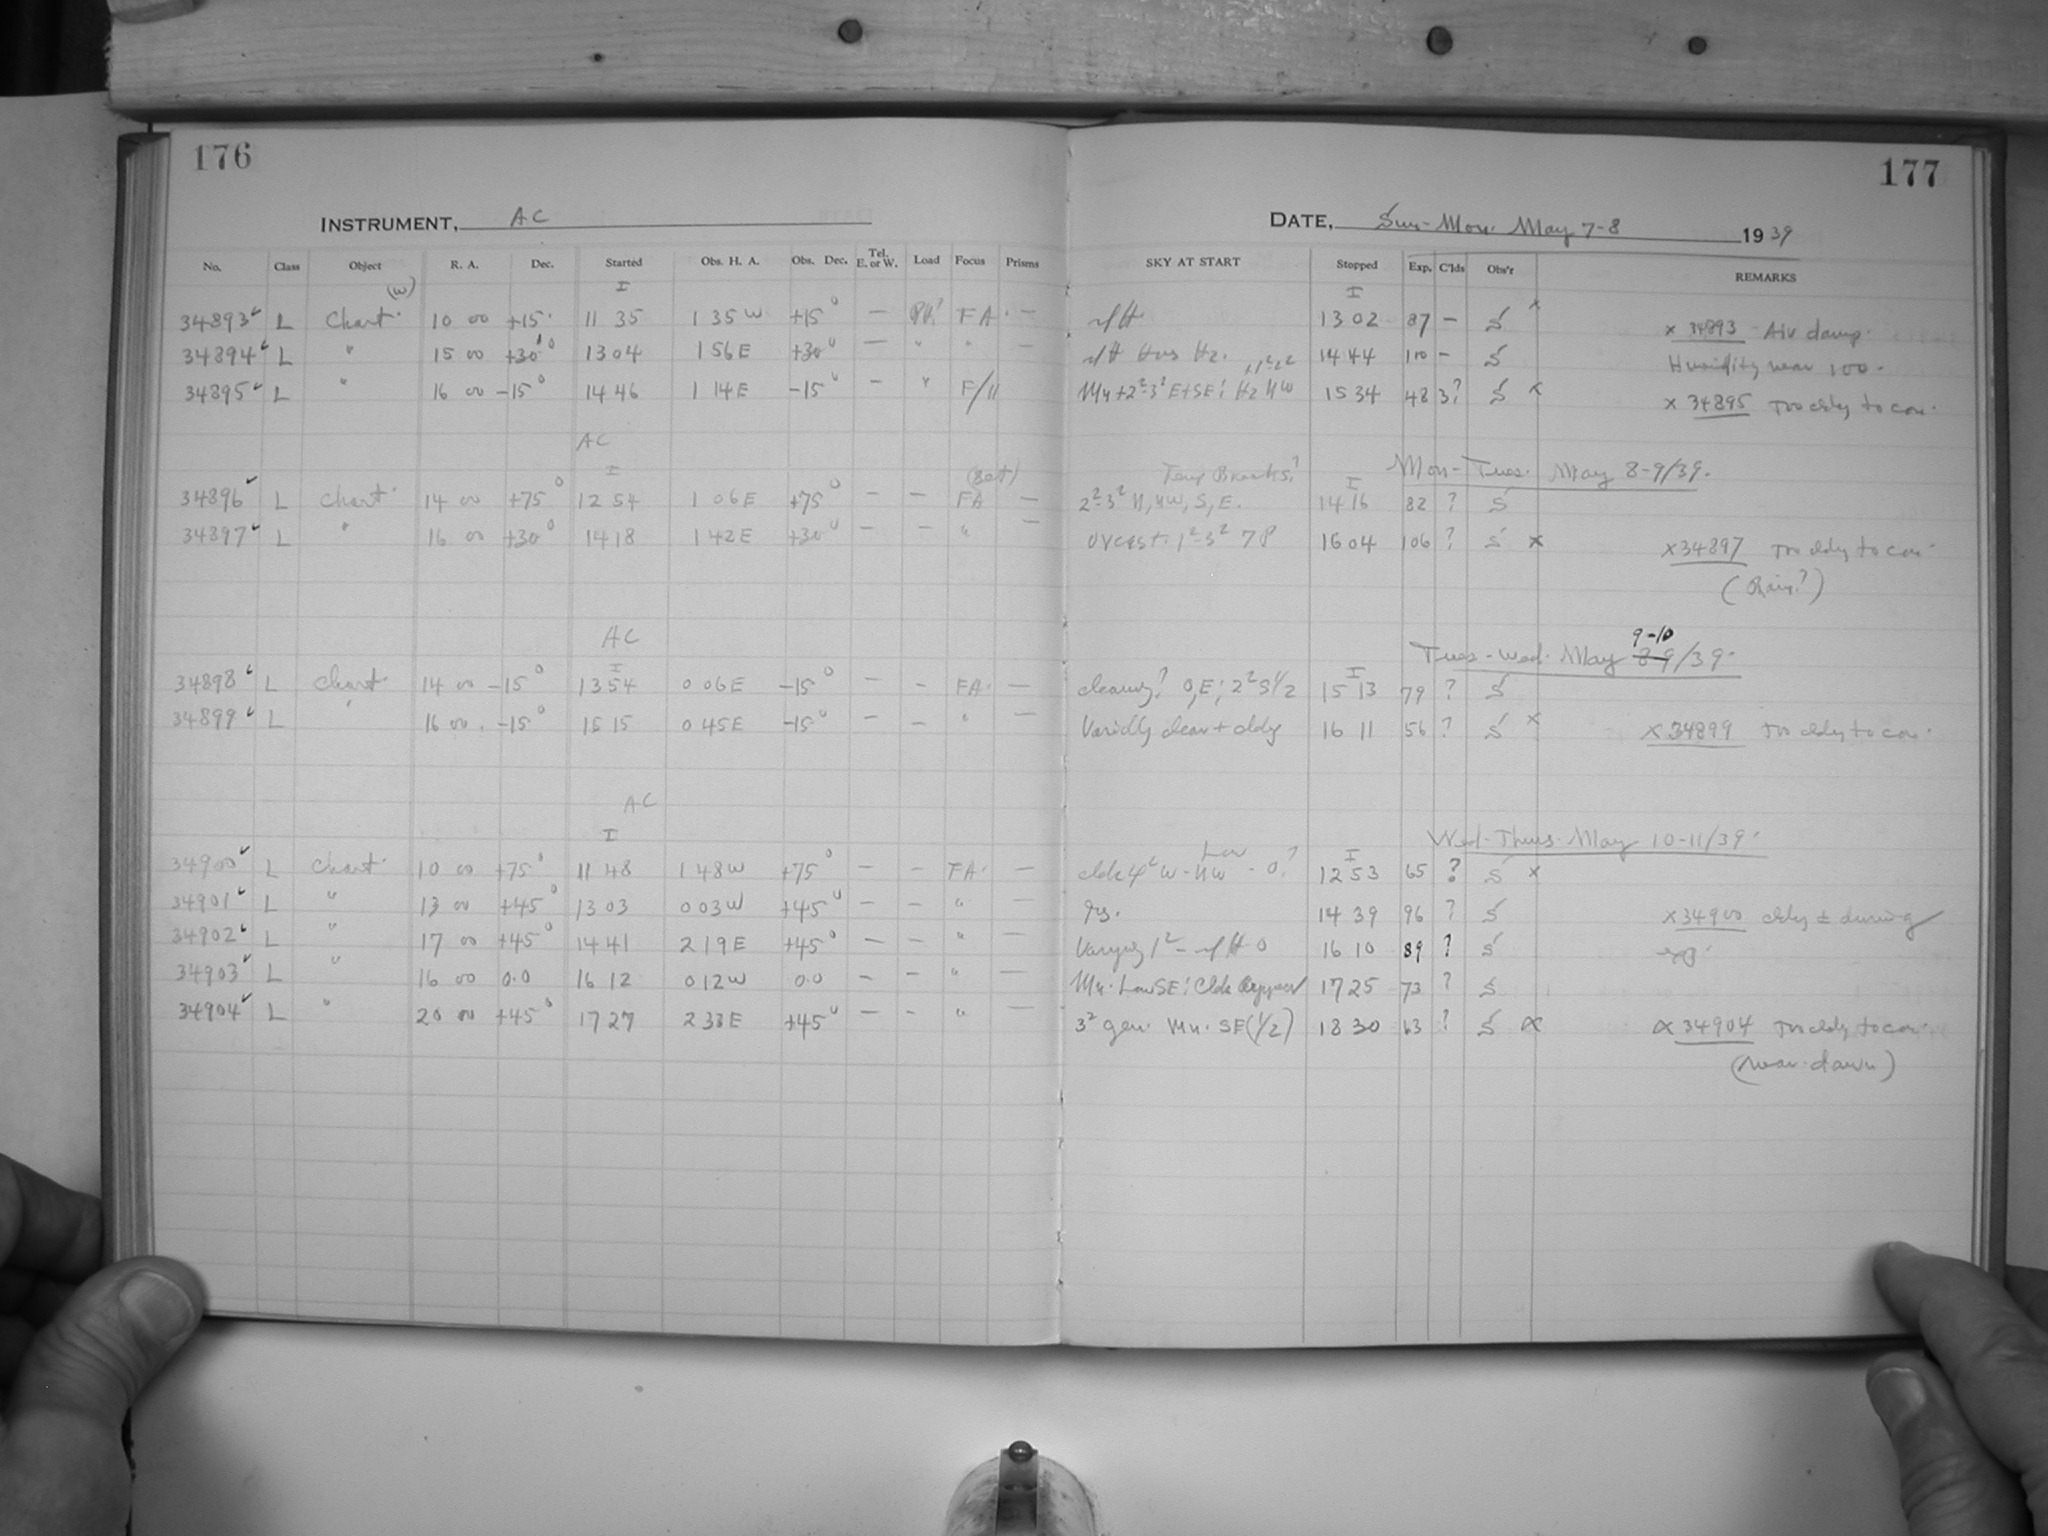 176
177
INSTRUMENT, AC
DATE, Sun-Mon. May 7-8 1939
No. Class Object R. A. Dec. Started Obs. H. A. Obs. Dec. Tel. E. or W. Load Focus Prisms SKY AT START Stopped Exp. C'lds Obs'r REMARKS
(W) I I
34893 L Chart. 10 00 +15° 11 35 1 35 W +15° — FA. — 13 02 87 — S x x 34893 - Air damp.
34894 L " 15 00 +30° 13 04 1 56 E +30° — " " — Hz. 14 44 100 — S Humidity near 100.
34895 L " 16 00 -15° 14 46 1 14 E -15° — " F/11 Mn + 2²-3² E+SE; Hz NW 15 34 48 3? S x x 34895 Too cldy to con.
AC
I (Set) Temp Breaks? I Mon-Tues. May 8-9/39.
34896 L Chart. 14 00 +75° 12 54 1 06 E +75° — — FA — 2²-3² N, NW, S, E. 14 16 82 ? S
34897 L " 16 00 +30° 14 18 1 42 E +30° — — " — Ovcast. 1²-3² 16 04 106 ? S x x 34897 Too cldy to con.
(Rain?)
AC 9-10
I I Tues-Wed. May 8-9/39.
34898 L Chart. 14 00 -15° 13 54 0 06 E -15° — — FA. — clearing? 0, E; 2² S 1/2 15 13 79 ? S
34899 L " 16 00. -15° 15 15 0 45 E -15° — — " — Variably clear + cldy 16 11 56 ? S x x 34899 Too cldy to con.
AC
I Low I Wed-Thurs. May 10-11/39.
34900 L Chart. 10 00 +75° 11 48 1 48 W +75° — — FA. — clds 4² W-NW - 0? 12 53 65 ? S x
34901 L " 13 00 +45° 13 03 0 03 W +45° — — " — 14 39 96 ? S x 34900 cldy ± during
34902 L " 17 00 +45° 14 41 2 19 E +45° — — " — Varying 1² - 0 16 10 89 ? S
34903 L " 16 00 0.0 16 12 0 12 W 0.0 — — " — Mn. Low SE; Clds 17 25 73 ? S
34904 L " 20 00 +45° 17 27 2 33 E +45° — — " — 3² gen. Mn. SE (1/2) 18 30 63 ? S x x 34904 Too cldy to con.
(near dawn)